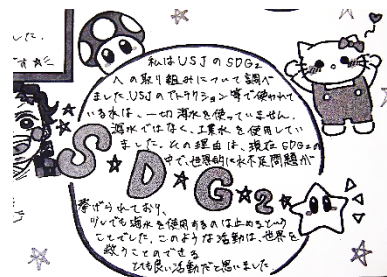 した。
私はUSJのSDGs
への取り組みについて調べ
ました。USJのアトラクション等で使われて
いる水は、一切海水を使っていません。
海水ではなく、工業水を使用してい
ました。その理由は、現在SDGsの
中で、世界的に水不足問題が
S・D・G・s
挙げられており、
少しでも海水を使用するのは止めようという
ことでした。このような活動は、世界を
救うことのできる
とても良い活動だと思いました